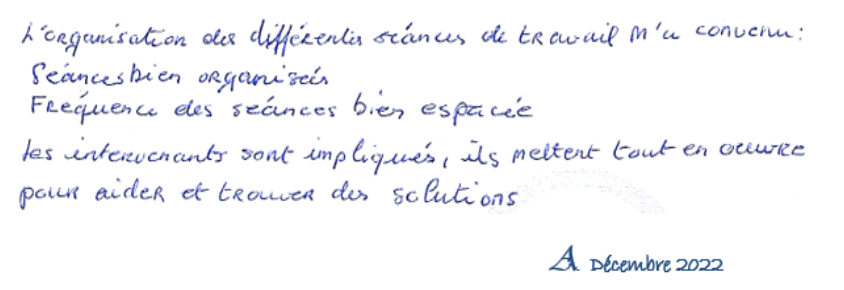 L'organisation des différentes séances de travail m'a convenu :
Séances bien organisées
Fréquence des séances bien espacée
Les intervenants sont impliqués, ils mettent tout en oeuvre
pour aider et trouver des solutions
A Décembre 2022